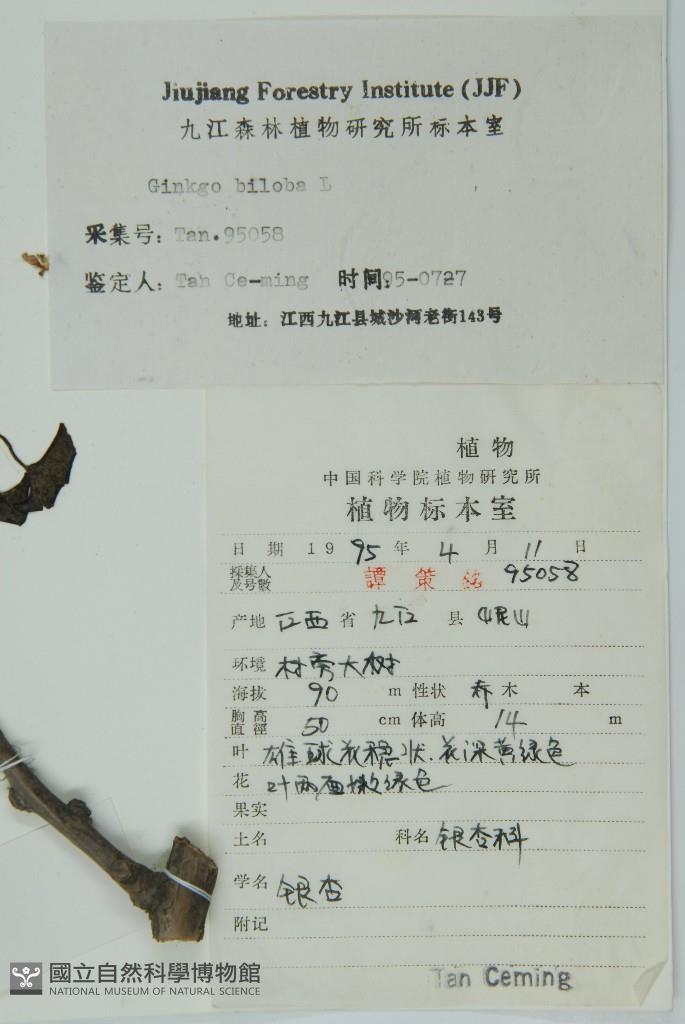 Jiujiang Forestry Institute (JJF)
九江森林植物研究所标本室
Ginkgo biloba L
采集号: Tan.95058
鉴定人: Tan Ce-ming 时间: 95-0727
地址: 江西九江县城沙河老街143号
植物
中国科学院植物研究所
植物标本室
日期 1995年4月11日
採集人及号数 譚策铭 95058
产地 江西省九江县岷山
环境 村旁大树
海拔 90 m 性状 乔木 本
胸高直徑 50 cm 体高 14 m
叶 雄球花穗状.花深黄绿色
花 叶两面嫩绿色
果实
土名 科名 银杏科
学名 银杏
附记
Tan Ceming
國立自然科學博物館
NATIONAL MUSEUM OF NATURAL SCIENCE